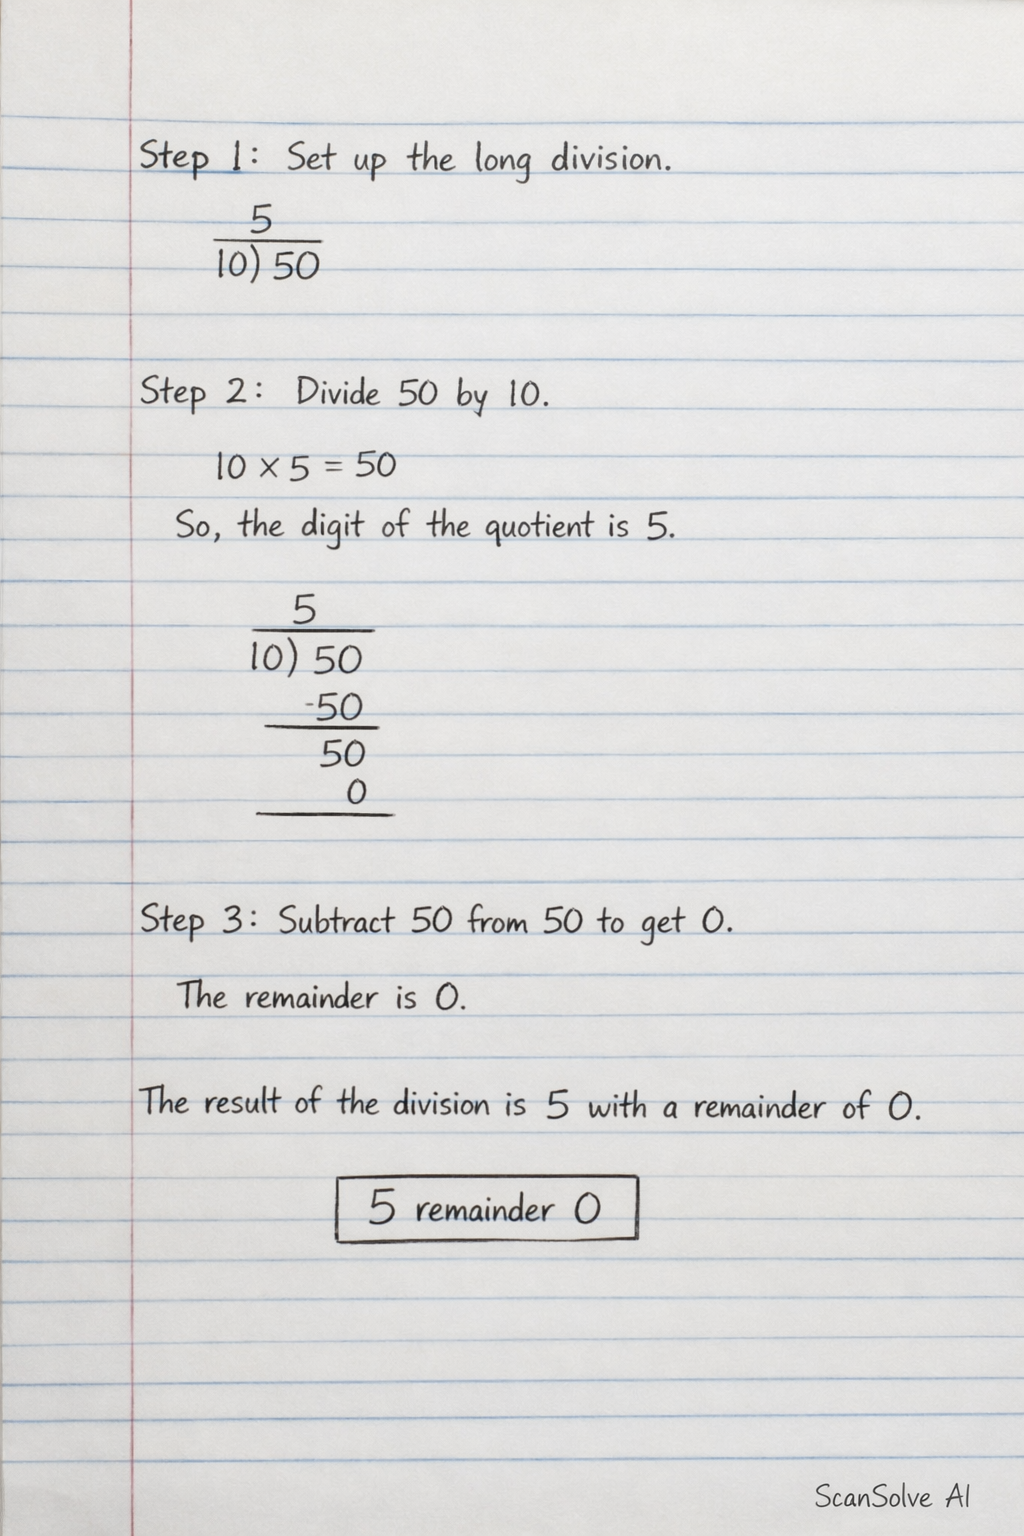 Step 1: Set up the long division.
5
10) 50
Step 2: Divide 50 by 10.
10 × 5 = 50
So, the digit of the quotient is 5.
5
10) 50
-50
50
0
Step 3: Subtract 50 from 50 to get 0.
The remainder is 0.
The result of the division is 5 with a remainder of 0.
5 remainder 0
ScanSolve AI